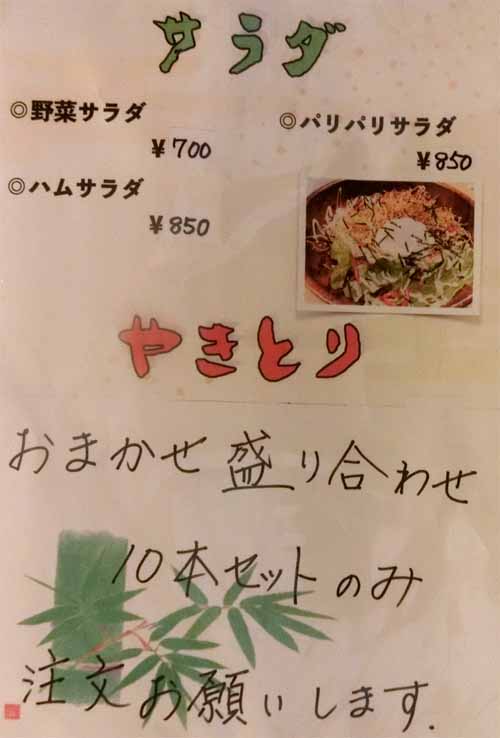 サラダ
◎野菜サラダ
¥700
◎パリパリサラダ
¥850
◎ハムサラダ
¥850
やきとり
おまかせ盛り合わせ
10本セットのみ
注文お願いします.